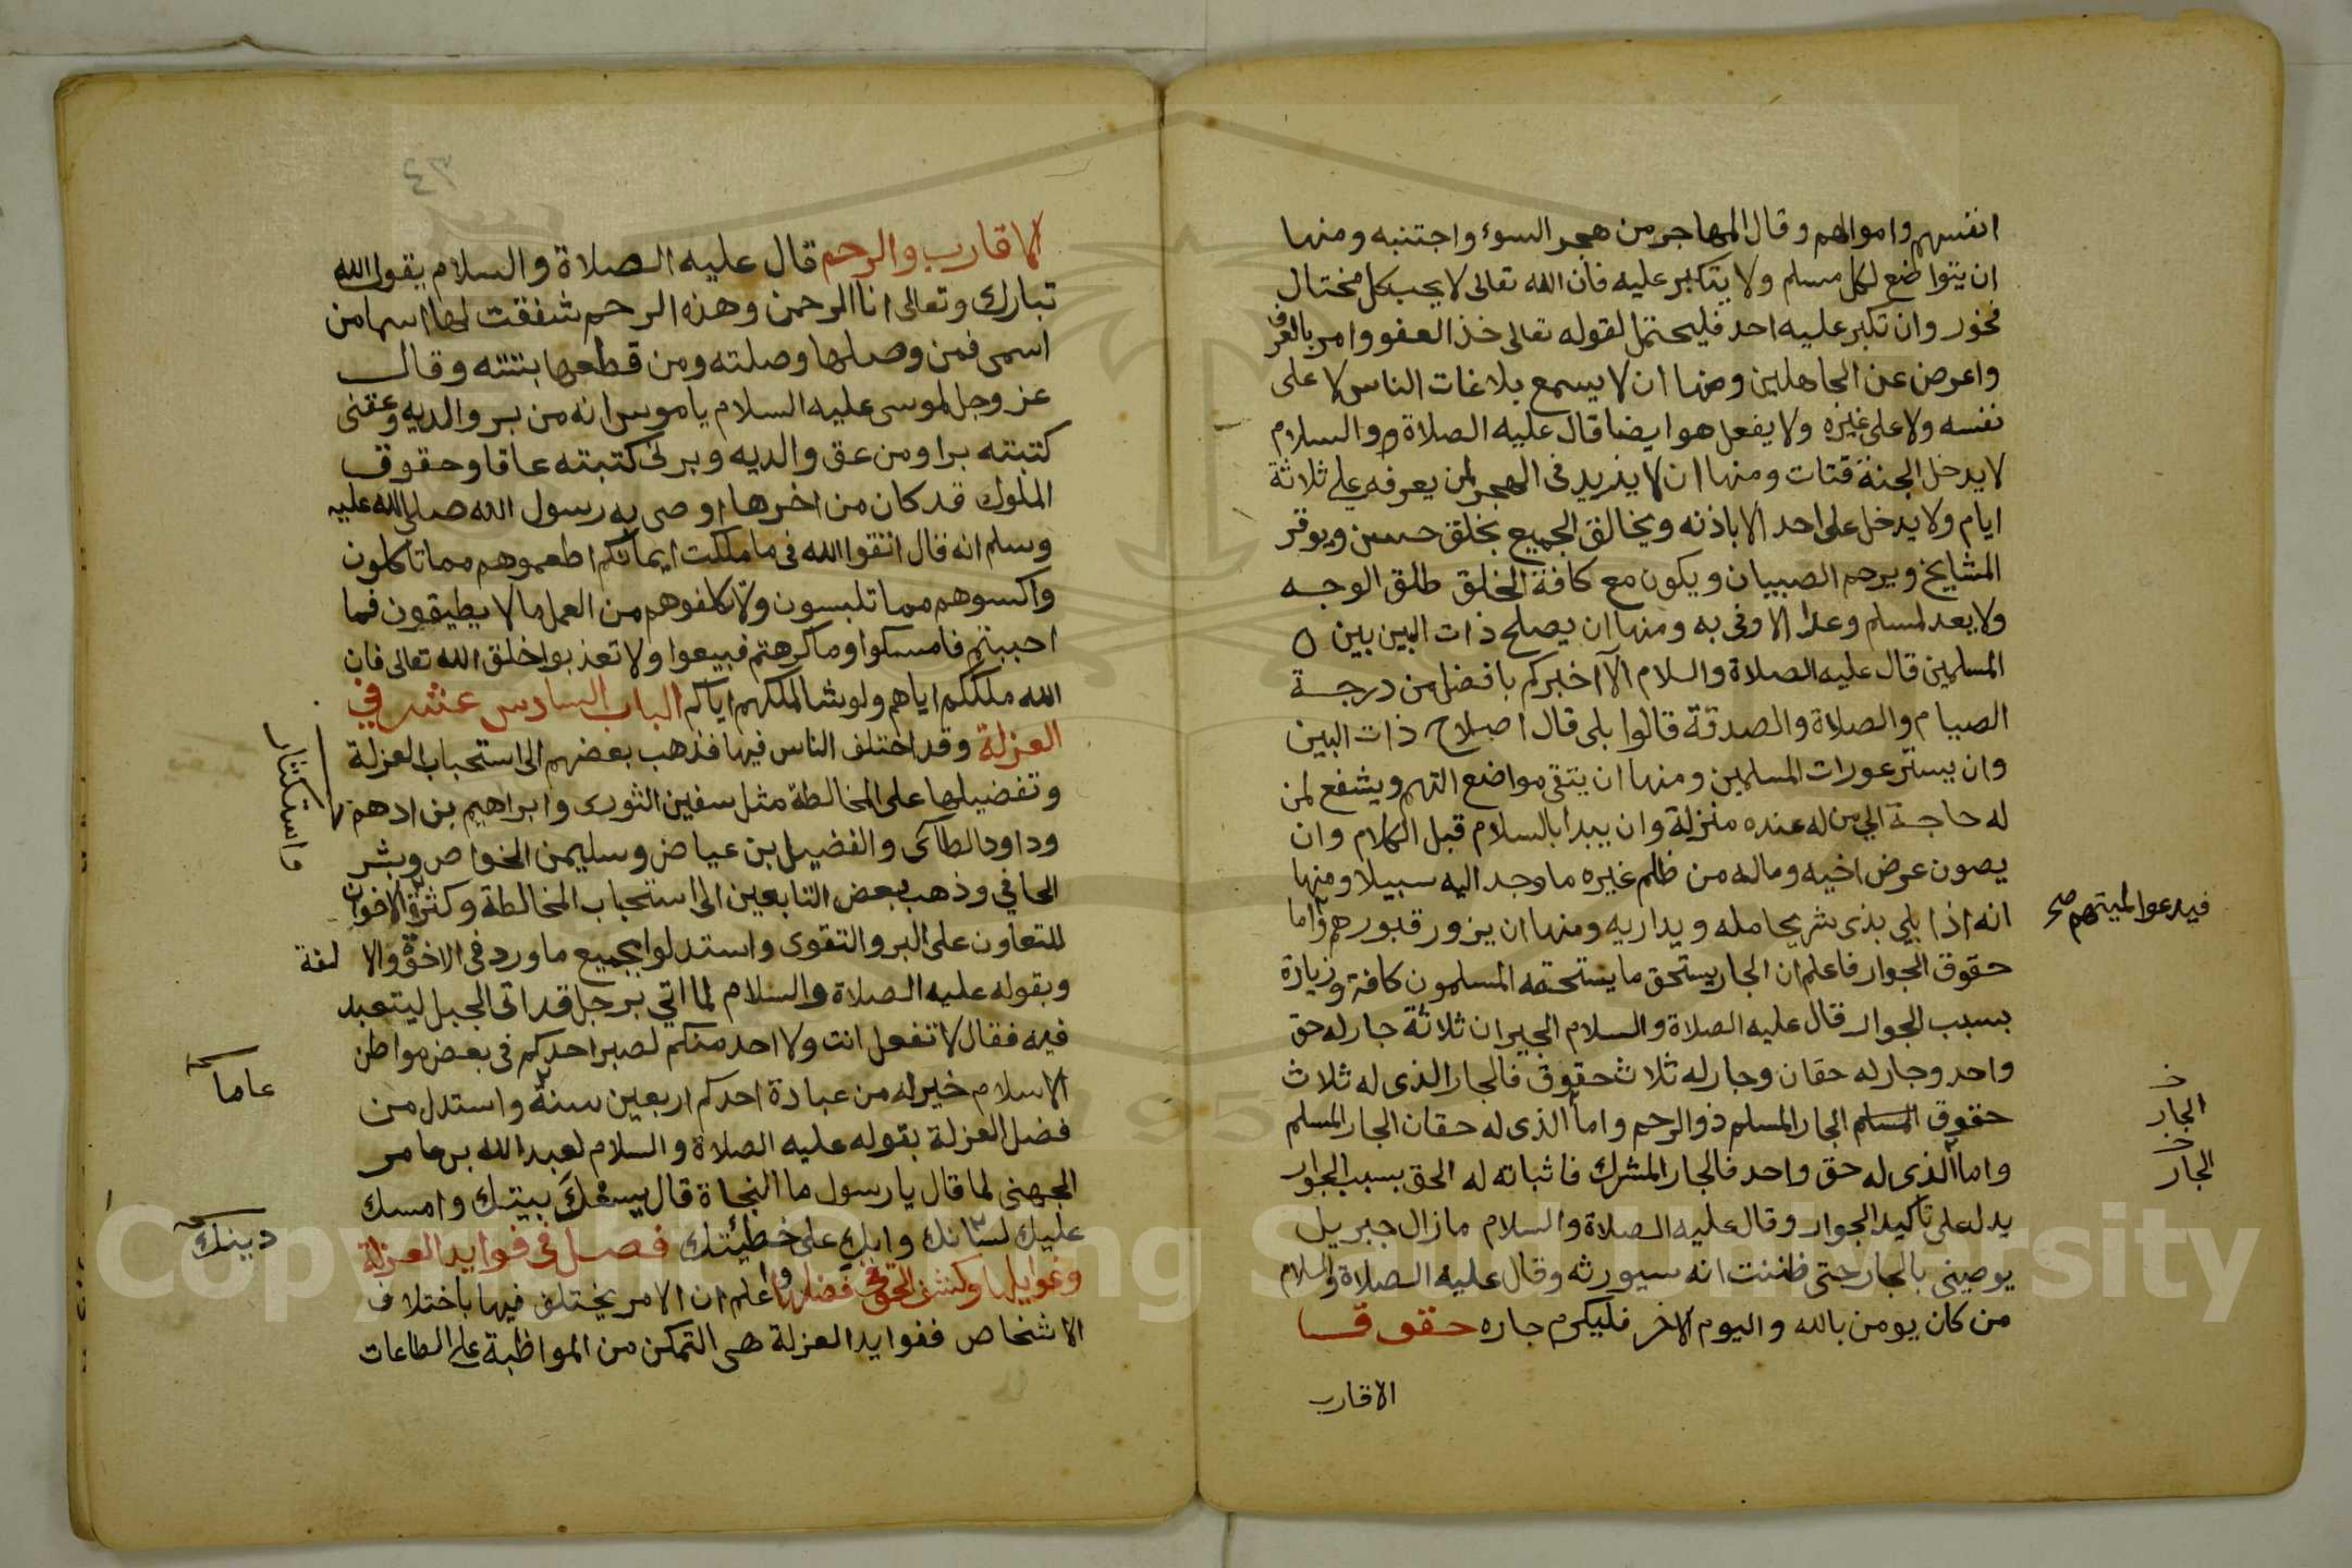 انفسهم واموالهم وقال المهاجر من هجر السوء واجتنبه ومنها
ان يتواضع لكل مسلم ولا يتكبر عليه فان الله تعالى لا يحب كل مختال
فخور وان تكبر عليه احد فليحتمل لقوله تعالى خذ العفو وامر بالعرف
واعرض عن الجاهلين ومنها ان لا يسمع بلاغات الناس لا على
نفسه ولا على غيره ولا يفعل هو ايضا قال عليه الصلاة والسلام
لا يدخل الجنة قتات ومنها ان لا يزيد في الهجر لمن يعرفه على ثلاثة
ايام ولا يدخل على احد الا باذنه ويخالق الجميع بخلق حسن ويوقر
المشايخ ويرحم الصبيان ويكون مع كافة الخلق طلق الوجه
ولا يعد لمسلم وعدا الا وفى به ومنها ان يصلح ذات البين بين
المسلمين قال عليه الصلاة والسلام الا اخبركم بافضل من درجة
الصيام والصلاة والصدقة قالوا بلى قال اصلاح ذات البين
وان يستر عورات المسلمين ومنها ان يتقى مواضع التهم ويشفع لمن
له حاجة الي من له عنده منزلة وان يبدا بالسلام قبل الكلام وان
يصون عرض اخيه وماله من ظلم غيره ما وجد اليه سبيلا ومنها
انه اذا بلي بذى شر يجامله ويداريه ومنها ان يزور قبورهم واما
فيدعوا لميتهم صح
حقوق الجوار فاعلم ان الجار يستحق ما يستحقه المسلمون كافة وزيادة
بسبب الجوار قال عليه الصلاة والسلام الجيران ثلاثة جار له حق
واحد وجار له حقان وجار له ثلاث حقوق فالجار الذى له ثلاث
حقوق المسلم الجار المسلم ذو الرحم واما الذى له حقان الجار المسلم
خ
الجار
واما الذى له حق واحد فالجار المشرك فاثباته له الحق بسبب الجوار
خ
الجار
يدل على تأكيد الجوار وقال عليه الصلاة والسلام ما زال جبريل
يوصينى بالجار حتى ظننت انه سيورثه وقال عليه الصلاة والسلام
من كان يومن بالله واليوم الاخر فليكرم جاره حقوق
الاقارب
٤٣
الاقارب والرحم قال عليه الصلاة والسلام يقول الله
تبارك وتعالى انا الرحمن وهذه الرحم شفقت لها اسما من
اسمى فمن وصلها وصلته ومن قطعها بتته وقال
عز وجل لموسى عليه السلام يا موسى انه من بر والديه وعقنى
كتبته برا ومن عق والديه وبرنى كتبته عاقا وحقوق
الملوك قد كان من اخرها اوصى به رسول الله صلى الله عليه
وسلم انه قال اتقوا الله فى ما ملكت ايمانكم اطعموهم مما تاكلون
واكسوهم مما تلبسون ولا تكلفوهم من العمل ما لا يطيقون فما
احببتم فامسكوا وما كرهتم فبيعوا ولا تعذبوا خلق الله تعالى فان
الله ملككم اياهم ولو شا لملكهم اياكم الباب السادس عشر في
العزلة وقد اختلف الناس فيها فذهب بعضهم الى استحباب العزلة
وتفضيلها على المخالطة مثل سفين الثورى وابراهيم بن ادهم
وداود الطاى والفضيل بن عياض وسليمن الخواص وبشر
الحافي وذهب بعض التابعين الى استحباب المخالطة وكثرة الاخوان
واستكثار
للتعاون على البر والتقوى واستدلوا بجميع ما ورد فى الاخوة والا لفة
وبقوله عليه الصلاة والسلام لما اتي برجل قد اتى الجبل ليتعبد
فيه فقال لا تفعل انت ولا احد منكم لصبر احدكم فى بعض مواطن
الاسلام خير له من عبادة احدكم اربعين سنة واستدل من
عاما
فضل العزلة بقوله عليه الصلاة والسلام لعبد الله بن عامر
الجهنى لما قال يا رسول ما النجاة قال يسعك بيتك وامسك
عليك لسانك وابك على خطيئتك فصل فى فوايد العزلة
دينك
وغوايلها وكشف الحق فى فضلها واعلم ان الامر يختلف فيها باختلاف
الاشخاص ففوايد العزلة هى التمكن من المواظبة على الطاعات
Copyright © King Saud University